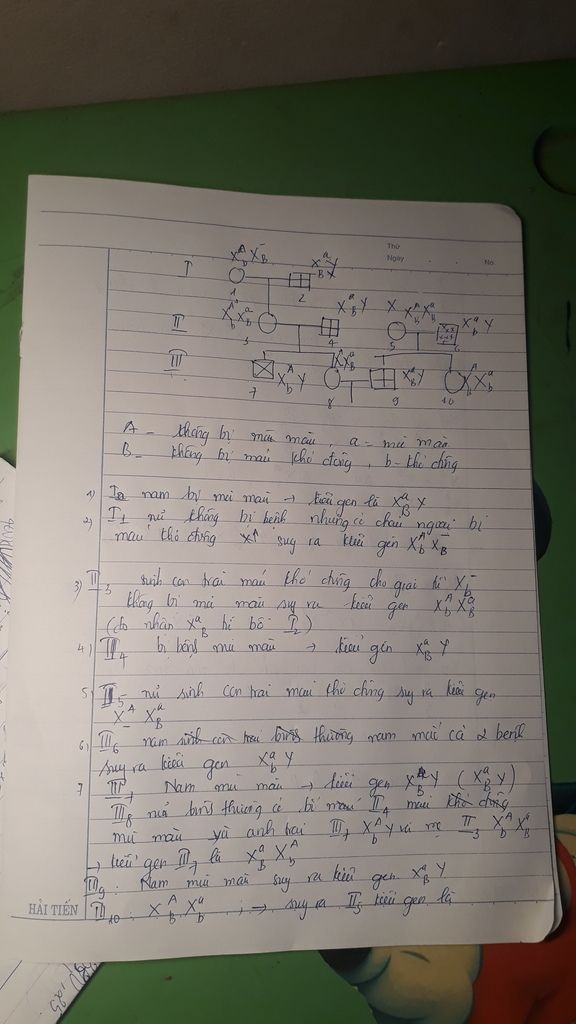 Thứ
Ngày No
I
1 2
II
3 4 5 6
III
7 8 9 10
A - không bị mù màu, a - mù màu
B - không bị máu khó đông, b - khó đông
1) I2 nam bị mù màu → kiểu gen là XaBY
2) I1 nữ không bị bệnh nhưng có cháu ngoại bị
máu khó đông suy ra kiểu gen XAbX-B
3) II3 sinh con trai máu khó đông cho giao tử X-b
không bị mù màu suy ra kiểu gen XAbXaB
(do nhận XaB từ bố I2)
4) II4 bị bệnh mù màu → kiểu gen XaBY
5) II5 nữ sinh con trai máu khó đông suy ra kiểu gen
XA-XaB
6) III6 nam bình thường nam mắc cả 2 bệnh
suy ra kiểu gen XabY
7 III7 Nam mù màu → kiểu gen (XaBY)
III8 nữ bình thường có bố II4 máu khó đông
mù màu và anh trai III7 XAbY và mẹ II3 XAbXaB
→ kiểu gen III7 là XaBXAb
III9: Nam mù màu suy ra kiểu gen XaBY
HẢI TIẾN III10: XABXab ; → suy ra II5 kiểu gen là